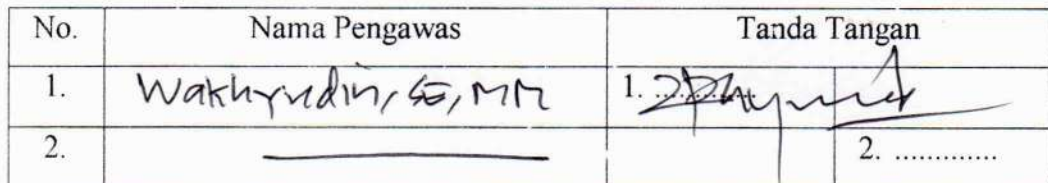 No. Nama Pengawas Tanda Tangan
1. Wakhyudin, SE, MM 1. ............
2. 2. .............